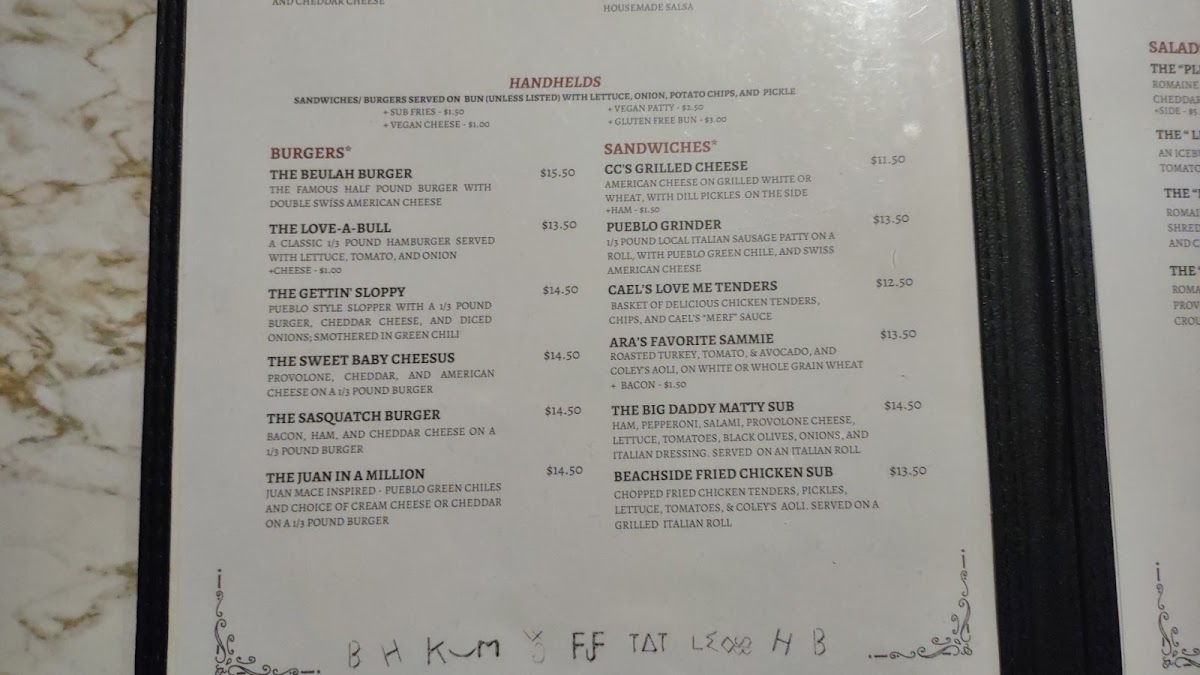 AND CHEDDAR CHEESE
HOUSEMADE SALSA
HANDHELDS
SANDWICHES/ BURGERS SERVED ON BUN (UNLESS LISTED) WITH LETTUCE, ONION, POTATO CHIPS, AND PICKLE
+ SUB FRIES - $1.50
+ VEGAN CHEESE - $1.00
+ VEGAN PATTY - $2.50
+ GLUTEN FREE BUN - $3.00
BURGERS*
THE BEULAH BURGER $15.50
THE FAMOUS HALF POUND BURGER WITH
DOUBLE SWISS AMERICAN CHEESE
THE LOVE-A-BULL $13.50
A CLASSIC 1/3 POUND HAMBURGER SERVED
WITH LETTUCE, TOMATO, AND ONION
+CHEESE - $1.00
THE GETTIN' SLOPPY $14.50
PUEBLO STYLE SLOPPER WITH A 1/3 POUND
BURGER, CHEDDAR CHEESE, AND DICED
ONIONS; SMOTHERED IN GREEN CHILI
THE SWEET BABY CHEESUS $14.50
PROVOLONE, CHEDDAR, AND AMERICAN
CHEESE ON A 1/3 POUND BURGER
THE SASQUATCH BURGER $14.50
BACON, HAM, AND CHEDDAR CHEESE ON A
1/3 POUND BURGER
THE JUAN IN A MILLION $14.50
JUAN MACE INSPIRED - PUEBLO GREEN CHILES
AND CHOICE OF CREAM CHEESE OR CHEDDAR
ON A 1/3 POUND BURGER
SANDWICHES*
CC'S GRILLED CHEESE $11.50
AMERICAN CHEESE ON GRILLED WHITE OR
WHEAT, WITH DILL PICKLES ON THE SIDE
+HAM - $1.50
PUEBLO GRINDER $13.50
1/3 POUND LOCAL ITALIAN SAUSAGE PATTY ON A
ROLL, WITH PUEBLO GREEN CHILE, AND SWISS
AMERICAN CHEESE
CAEL'S LOVE ME TENDERS $12.50
BASKET OF DELICIOUS CHICKEN TENDERS,
CHIPS, AND CAEL'S "MERF" SAUCE
ARA'S FAVORITE SAMMIE $13.50
ROASTED TURKEY, TOMATO, & AVOCADO, AND
COLEY'S AOLI, ON WHITE OR WHOLE GRAIN WHEAT
+ BACON - $1.50
THE BIG DADDY MATTY SUB $14.50
HAM, PEPPERONI, SALAMI, PROVOLONE CHEESE,
LETTUCE, TOMATOES, BLACK OLIVES, ONIONS, AND
ITALIAN DRESSING. SERVED ON AN ITALIAN ROLL
BEACHSIDE FRIED CHICKEN SUB $13.50
CHOPPED FRIED CHICKEN TENDERS, PICKLES,
LETTUCE, TOMATOES, & COLEY'S AOLI. SERVED ON A
GRILLED ITALIAN ROLL
B H
FJF TAT
H B
SALAD
THE "PL
ROMAINE
CHEDDAR
+SIDE - $5.
THE " L
AN ICEBU
TOMATO
THE "
ROMAI
SHRED
AND C
THE "
ROMA
PROV
CROU